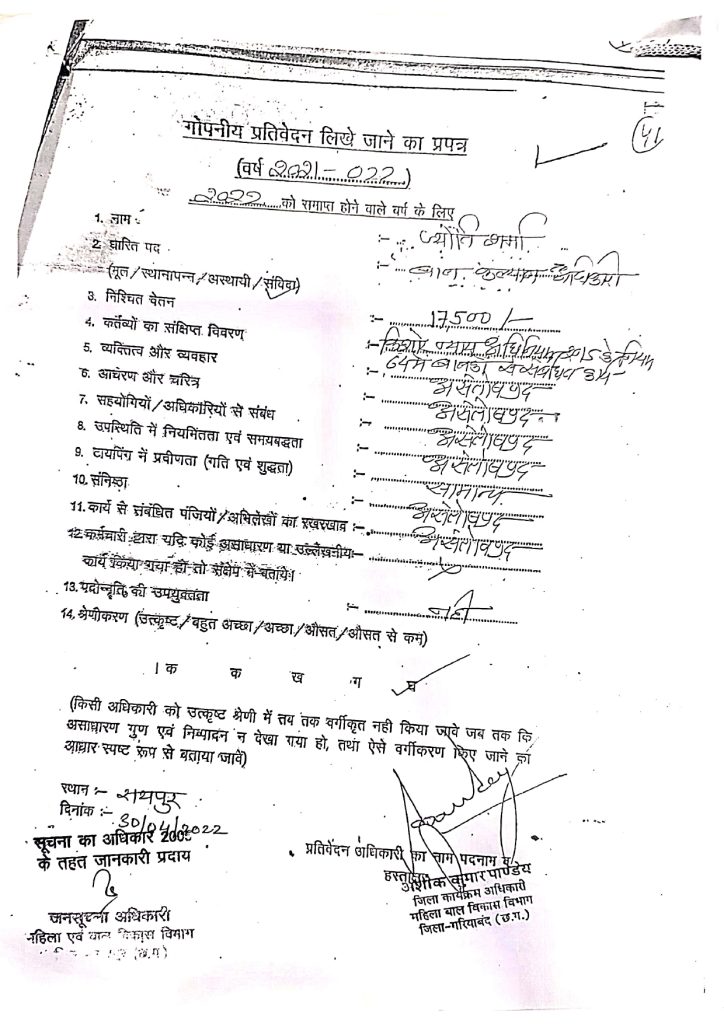 41
गोपनीय प्रतिवेदन लिखे जाने का प्रपत्र
(वर्ष 2021-022)
2022 को समाप्त होने वाले वर्ष के लिए
1. नाम :- ज्योति शर्मा
2. धारित पद :- बाल कल्याण अधिकारी
(मूल/स्थानापन्न/अस्थायी/संविदा)
3. निश्चित वेतन :- 17500/-
4. कर्तव्यों का संक्षिप्त विवरण :- किशोर न्याय अधिनियम 2015 के नियम
64 में बालकों से संबंधित
5. व्यक्तित्व और व्यवहार :- असंतोषप्रद
6. आचरण और चरित्र :- असंतोषप्रद
7. सहयोगियों/अधिकारियों से संबंध :- असंतोषप्रद
8. उपस्थिति में नियमितता एवं समयबद्धता :- असंतोषप्रद
9. टायपिंग में प्रवीणता (गति एवं शुद्धता) :- सामान्य
10. संनिष्ठा :- असंतोषप्रद
11. कार्य से संबंधित पंजियों/अभिलेखों का रखरखाव :- असंतोषप्रद
12. कर्मचारी द्वारा यदि कोई असाधारण या उल्लेखनीय :-
कार्य किया गया हो तो संक्षेप में बताये।
13. पदोन्नति की उपयुक्तता :- नहीं
14. श्रेणीकरण (उत्कृष्ट/बहुत अच्छा/अच्छा/औसत/औसत से कम)
। क क ख ग घ
(किसी अधिकारी को उत्कृष्ट श्रेणी में तब तक वर्गीकृत नही किया जावे जब तक कि
असाधारण गुण एवं निष्पादन न देखा गया हो, तथा ऐसे वर्गीकरण किए जाने का
आधार स्पष्ट रूप से बताया जावें)
स्थान :- रायपुर
दिनांक :- 30/04/2022
सूचना का अधिकार 2005
के तहत जानकारी प्रदाय
जनसूचना अधिकारी
महिला एवं बाल विकास विभाग
प्रतिवेदन अधिकारी का नाम पदनाम व
हस्ताक्षर
अशोक कुमार पाण्डेय
जिला कार्यक्रम अधिकारी
महिला बाल विकास विभाग
जिला-गरियाबंद (छ.ग.)